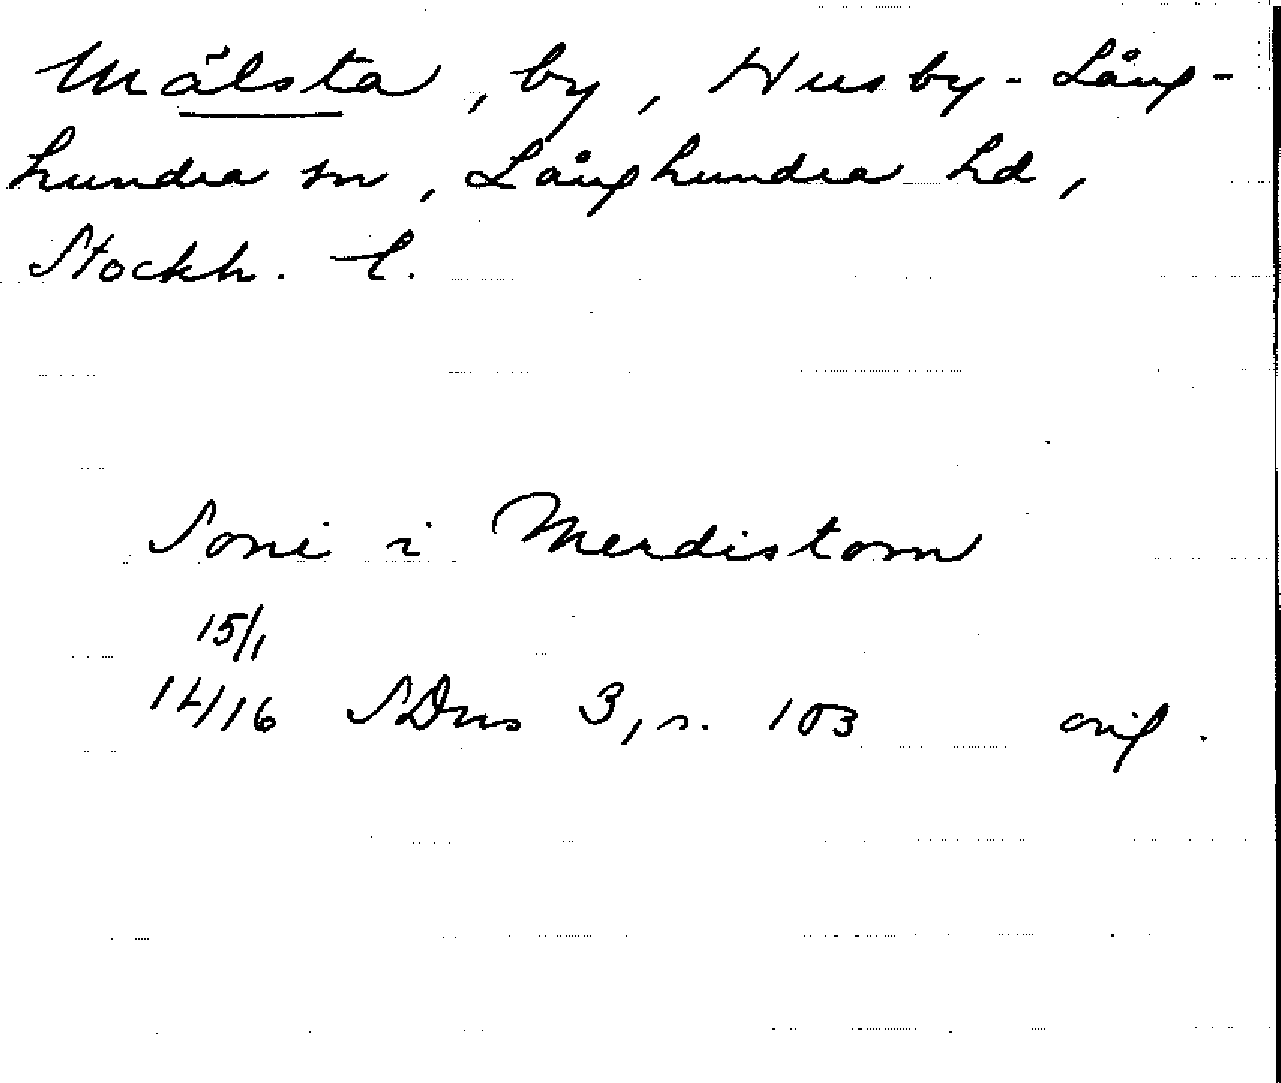 Målsta, by, Husby-Lång-
hundra sn, Långhundra hd,
Stockh. l.
Soni i Merdistom
15/1
1416 SDns 3, s. 103 orig.